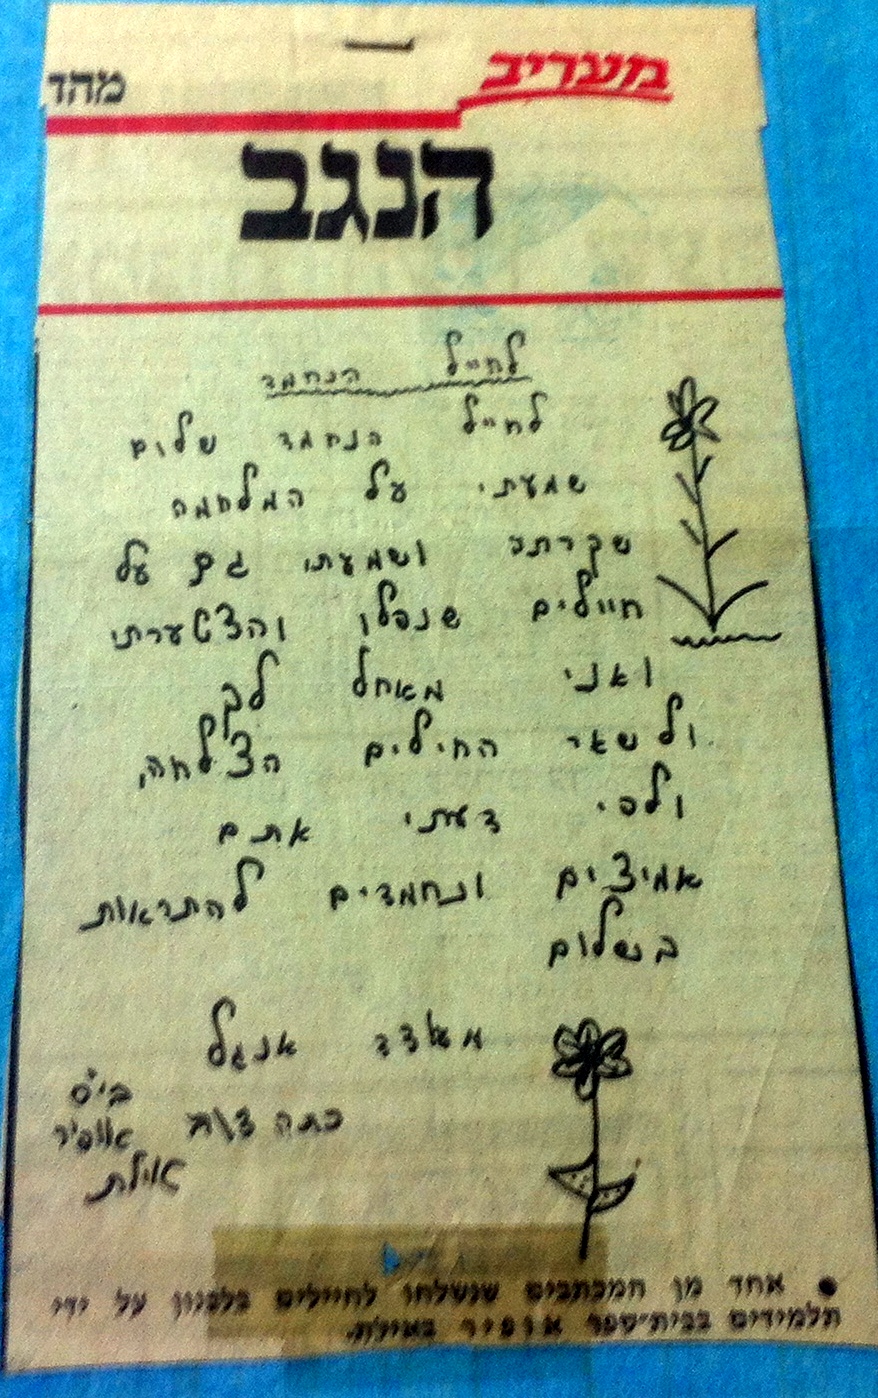 מעריב
מהד
הנגב
לחייל הנחמד
לחייל הנחמד שלום
שמעתי על המלחמה
שקרתה ושמעתי גם על
חיילים שנפלו והצטערתי
ואני מאחל לך
ולשאר החילים הצלחה,
ולפי דעתי אתם
אמיצים ונחמדים להתראות
בשלום
אנגל
בי"ס
כתה
אופיר
אילת
● אחד מן המכתבים שנשלחו לחיילים בלבנון על ידי
תלמידים בבית־ספר אופיר באילת.